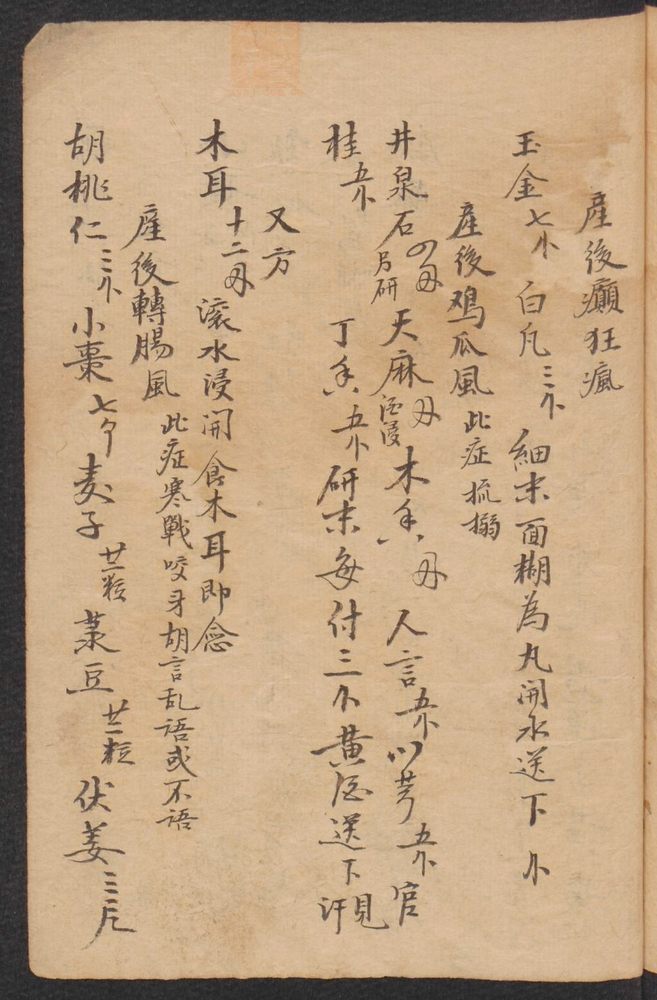 産後癲狂瘋
玉金七卜 白凡三卜 細末面糊為丸開水送下卜
産後鸡瓜風 此症梳搦
井泉石 另研 天麻 酒浸 木香 人言 川芎 官
桂 丁香 研末每付三卜黄酒送下 見汗
又方
木耳十二 滚水浸開食木耳即念
産後轉腸風 此症寒戰咬牙胡言乱语或不语
胡桃仁三卜 小棗七个 麦子廿一粒 菉豆廿一粒 伏姜三片